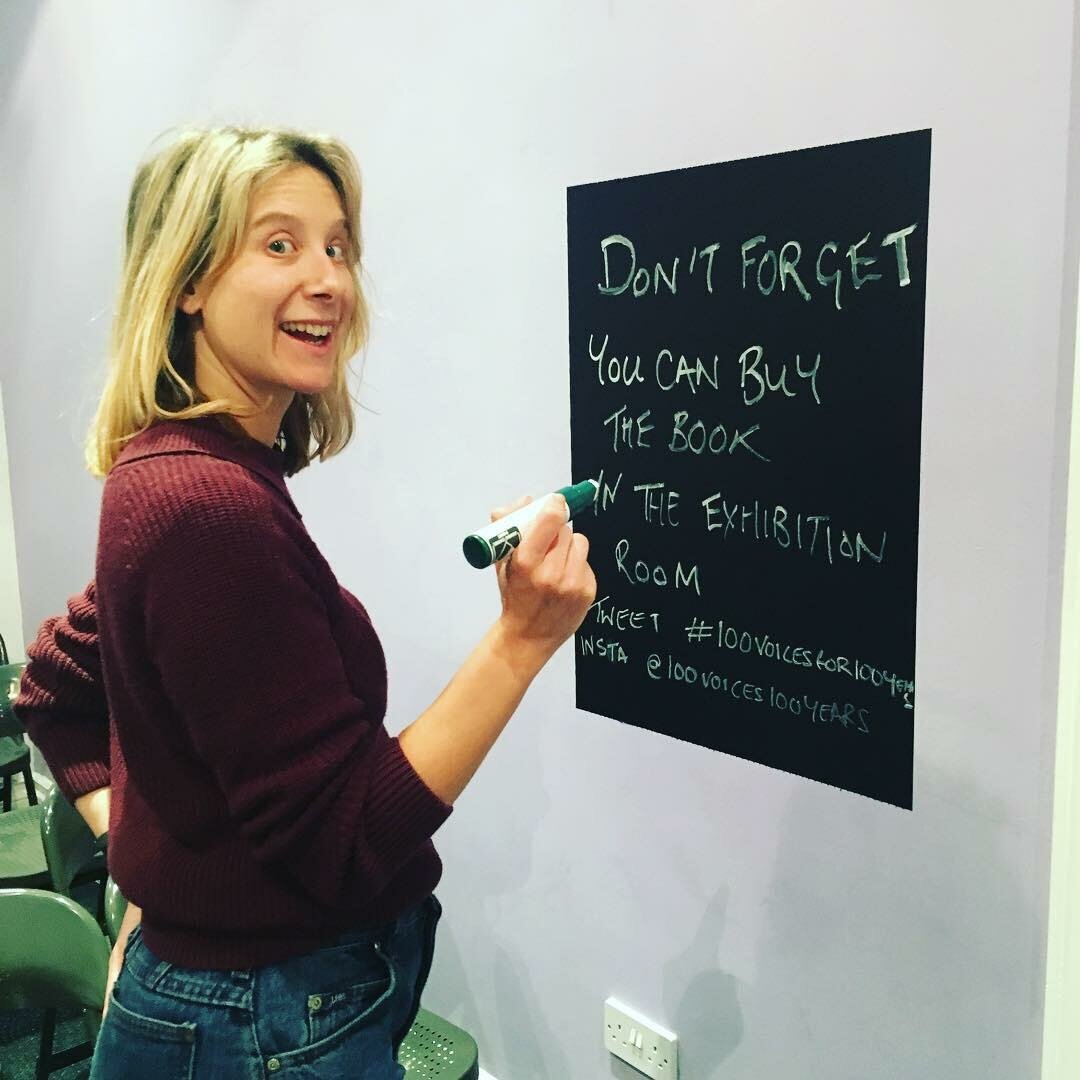 DON'T FORGET
YOU CAN BUY
THE BOOK
IN THE EXHIBITION
ROOM
TWEET #100VOICESFOR100YEARS
INSTA @100VOICES100YEARS